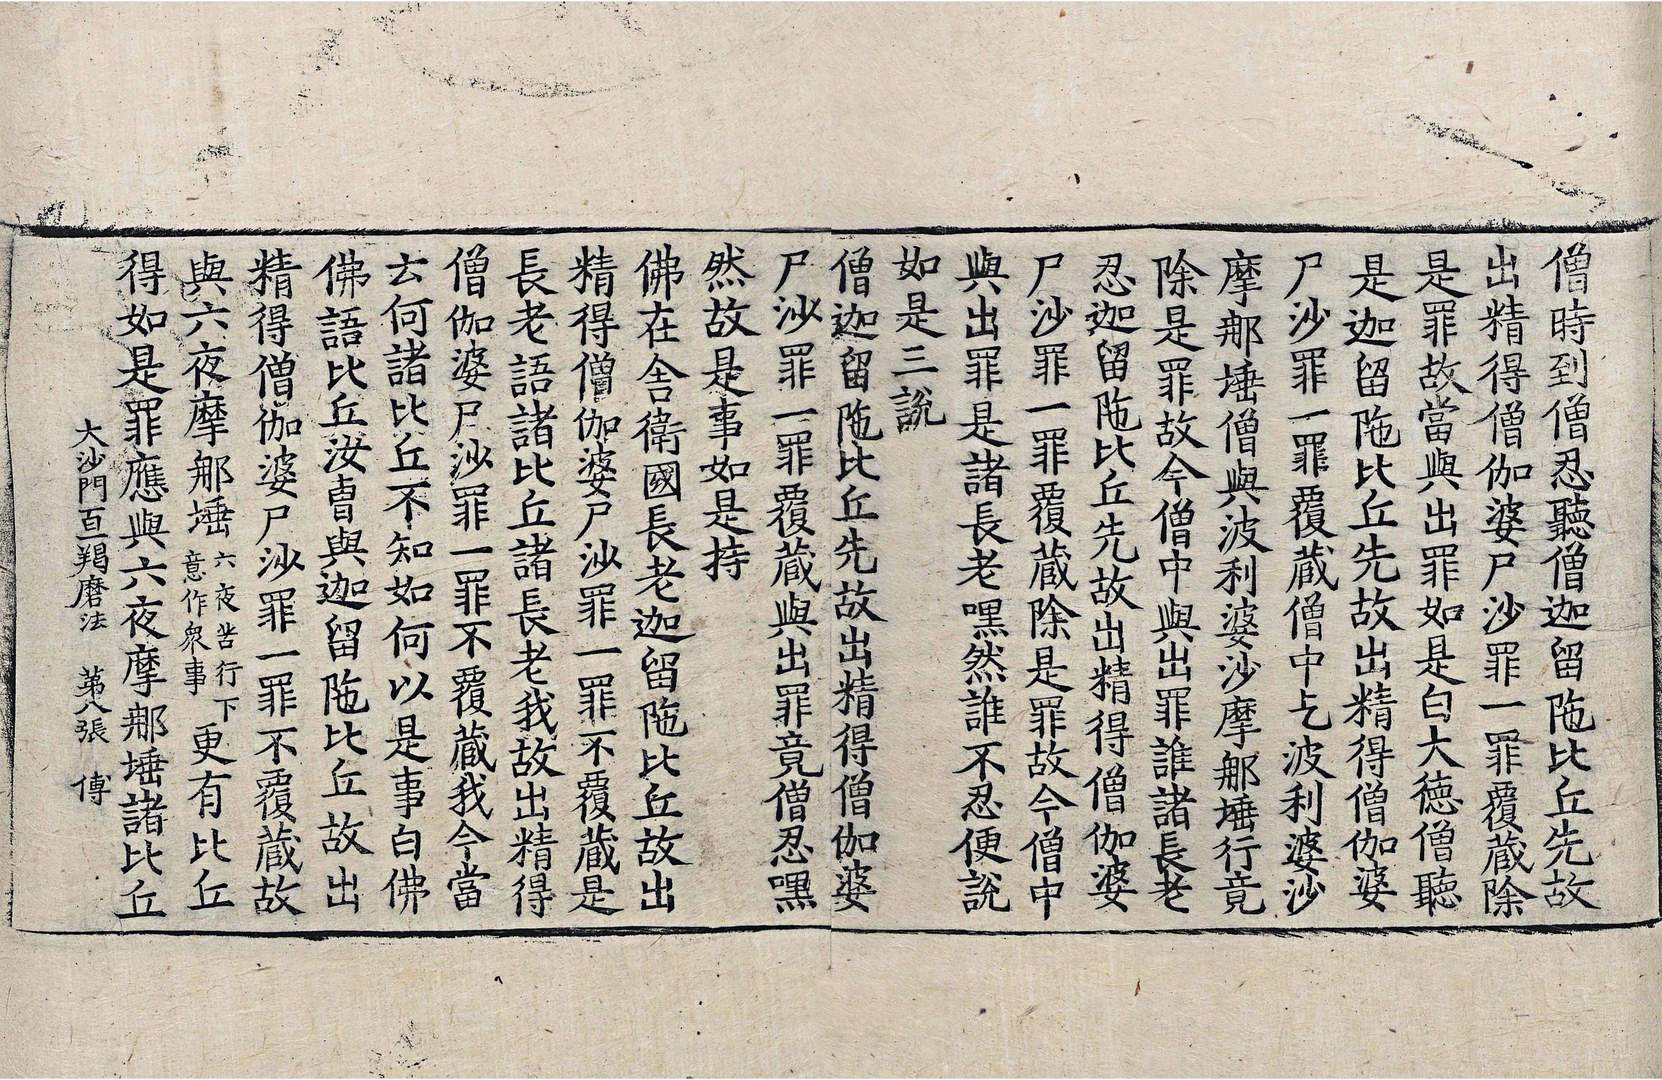 僧時到僧忍聽僧迦留陁比丘先故
出精得僧伽婆尸沙罪一罪覆藏除
是罪故當與出罪如是白大德僧聽
是迦留陁比丘先故出精得僧伽婆
尸沙罪一罪覆藏僧中乞波利婆沙
摩那埵僧與波利婆沙摩那埵行竟
除是罪故今僧中與出罪誰諸長老
忍迦留陁比丘先故出精得僧伽婆
尸沙罪一罪覆藏除是罪故今僧中
與出罪是諸長老嘿然誰不忍便說
如是三說
僧迦留陁比丘先故出精得僧伽婆
尸沙罪一罪覆藏與出罪竟僧忍嘿
然故是事如是持
佛在舍衛國長老迦留陁比丘故出
精得僧伽婆尸沙罪一罪不覆藏是
長老語諸比丘諸長老我故出精得
僧伽婆尸沙罪一罪不覆藏我今當
云何諸比丘不知如何以是事白佛
佛語比丘汝䓁與迦留陁比丘故出
精得僧伽婆尸沙罪一罪不覆藏故
與六夜摩那埵六夜苦行下意作衆事更有比丘
得如是罪應與六夜摩那埵諸比丘
大沙門百羯磨法 第八張 傅